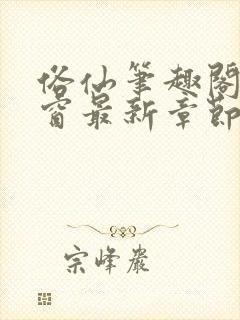 俗仙笔趣阁
窗最新章节
宗峰岩